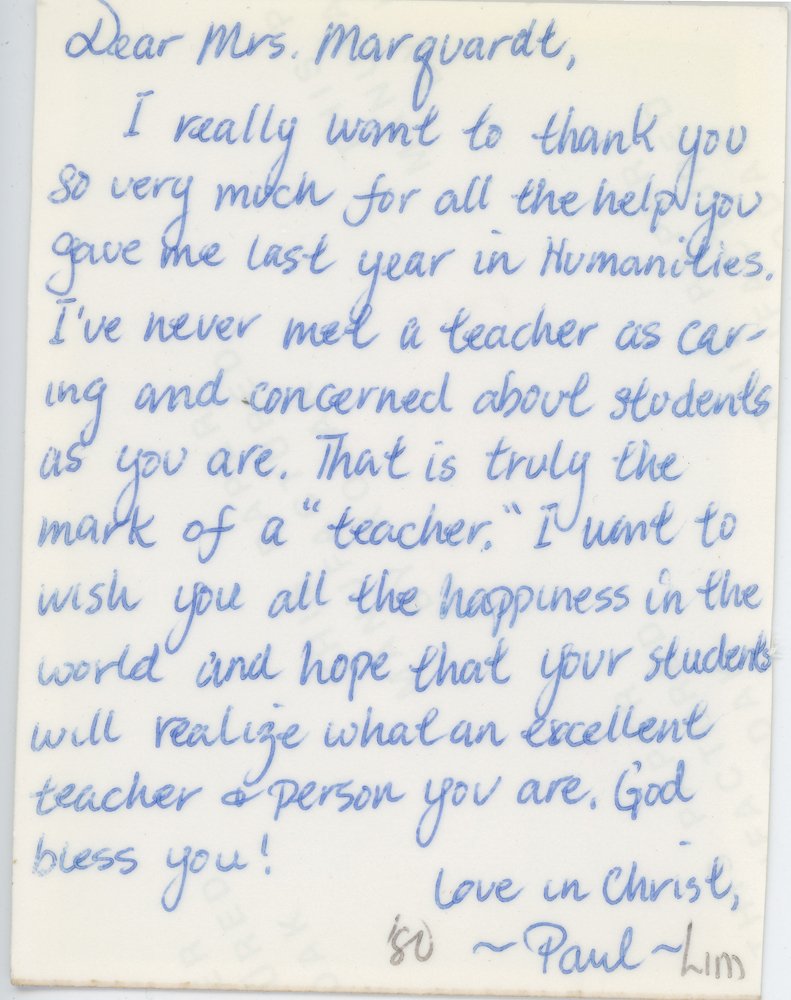 Dear Mrs. Marquardt,
I really want to thank you
so very much for all the help you
gave me last year in Humanities.
I've never met a teacher as car-
ing and concerned about students
as you are. That is truly the
mark of a "teacher." I want to
wish you all the happiness in the
world and hope that your students
will realize what an excellent
teacher & person you are. God
bless you!
Love in Christ,
'80 ~ Paul ~ Lim